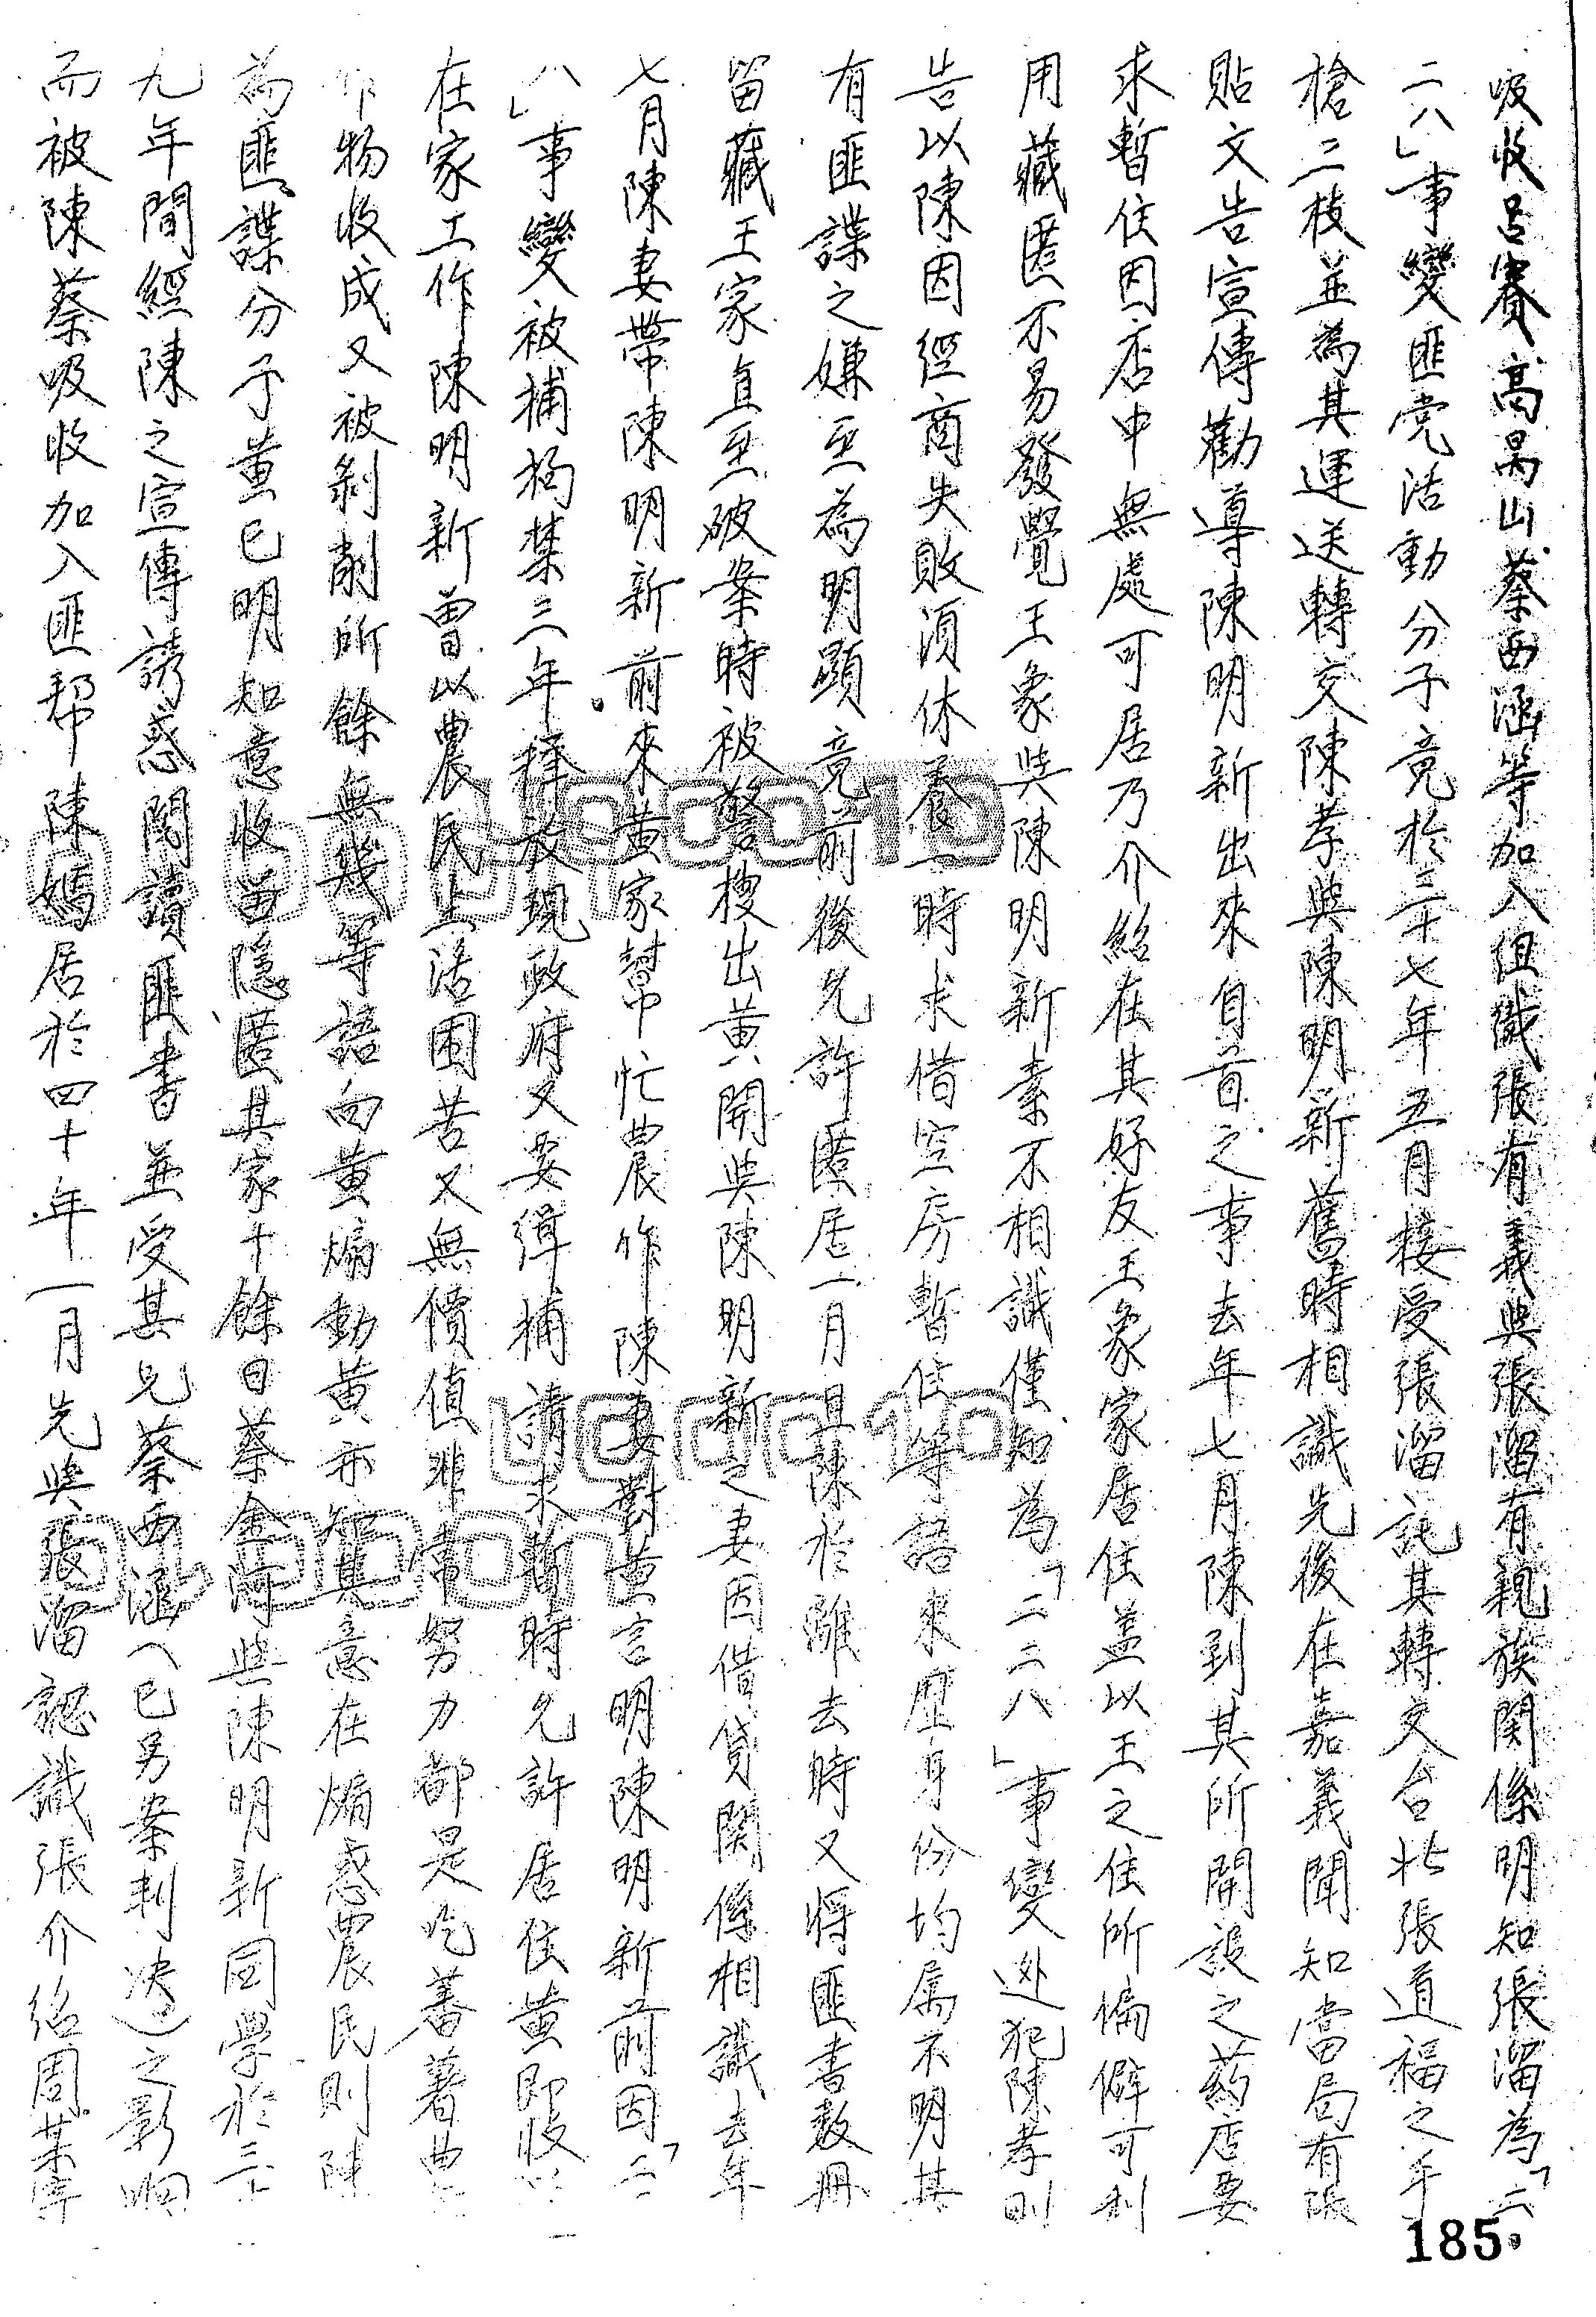 吸收呂賽高昺山蔡西涵等加入組織張有義與張溜有親族関係明知張溜為「二
二八」事變匪党活動分子竟於三十七年五月接受張溜託其轉交台北張道福之手
槍二枝並為其運送轉交陳孝與陳明新舊時相識先後在嘉義聞知當局有張
貼文告宣傳勸導陳明新出來自首之事去年七月陳到其所開設之葯店要
求暫住因店中無處可居乃介紹在其好友王象家居住盖以王之住所偏僻可利
用藏匿不易發覺王象與陳明新素不相識僅知為「二二八」事變逃犯陳孝則
告以陳因經商失敗須休養一時求借空房暫住等語來歷身份均属不明其
有匪諜之嫌至為明顯竟前後允許匿居一月且陳於離去時又将匪書数冊
留藏王家直至破案時被警搜出黄開與陳明新之妻因借貸関係相識去年
七月陳妻帶陳明新前來黄家幫忙農作陳妻對黄言明陳明新前因「二二
八」事變被捕拘禁三年釋放現政府又要緝捕請求暫時允許居住黄即收
在家工作陳明新曾以農民生活困苦又無價值非常努力都是吃蕃薯農
作物收成又被剝削所餘無幾等語向黄煽動黄亦知其意在煽惑農民則陳
為匪諜分子黄已明知意收留隱匿其家十餘日蔡金河與陳明新同學於三十
九年間經陳之宣傳誘惑閱讀匪書並受其兄蔡西涵（已另案判决）之影响
而被陳蔡吸收加入匪帮陳嫣居於四十年一月先與張溜認識張介紹周某等
185